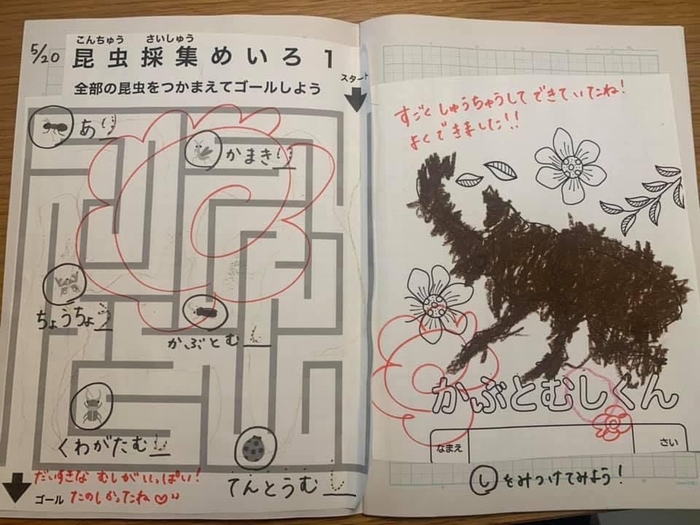 5/20
こんちゅう さいしゅう
昆虫採集めいろ1
全部の昆虫をつかまえてゴールしよう
スタート
あり
かまきり
ちょうちょう
かぶとむし
くわがたむし
てんとうむし
だいすきな むしがいっぱい!
ゴール
たのしかったね♡
すごくしゅうちゅうしてできていたね!
よくできました!!
かぶとむしくん
なまえ
さい
しをみつけてみよう!